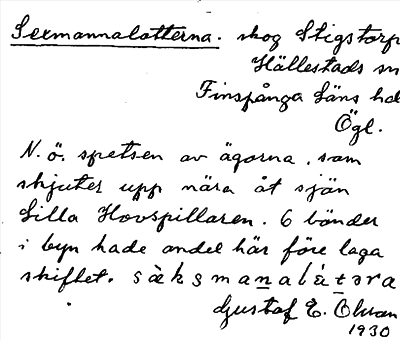 Sexmannalotterna. skog Stigstorp
Hällestads sn
Finspånga läns hd
Ögl.
N. ö. spetsen av ägorna, som
skjuter upp nära åt sjön
Lilla Hovspillaren. 6 bönder
i byn hade andel här före laga
skiftet. sàksmanalátəra
Gustaf E. Ölvan
1930